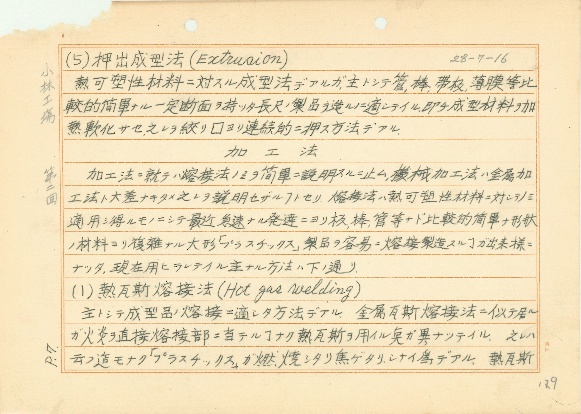 (5) 押出成型法 (Extrusion)
28-7-16
熱可塑性材料ニ対スル成型法デアルガ主トシテ管,棒,帯板,薄膜等比
較的簡単ナル一定断面ヲ持ッタ長尺ノ製品ヲ造ルニ適シテイル,即チ成型材料ヲ加
熱軟化サセ,之レヲ絞リ口ヨリ連続的ニ押ス方法デアル.
加工法
加工法ニ就テハ熔接法ノミヲ簡単ニ説明スルニ止ム,機械加工法ハ金属加
工法ト大差ナキタメ之レヲ説明セザルコトセリ 熔接法ハ熱可塑性材料ニ対シテノミ
適用シ得ルモノニシテ最近急速ナル発達ニヨリ板,棒,管等ナド比較的簡単ナ形状
ノ材料ヨリ複雑ナル大形「プラスチックス」製品ヲ容易ニ熔接製造スルコトガ出来様ニ
ナッタ,現在用ヒラレテイル主ナル方法ハ下ノ通リ
(1) 熱瓦斯熔接法 (Hot gas welding)
主トシテ成型品ノ熔接ニ適シタ方法デアル 金属瓦斯熔接法ニ似テ居ル
ガ火炎ヲ直接熔接部ニ当テルコトナク熱瓦斯ヲ用イル点ガ異ナッテイル
云フ迄モナク「プラスチックス」ガ燃焼シタリ焦ゲタリシナイ為デアル. 熱瓦斯
小林工場
第二回
P.7.
139